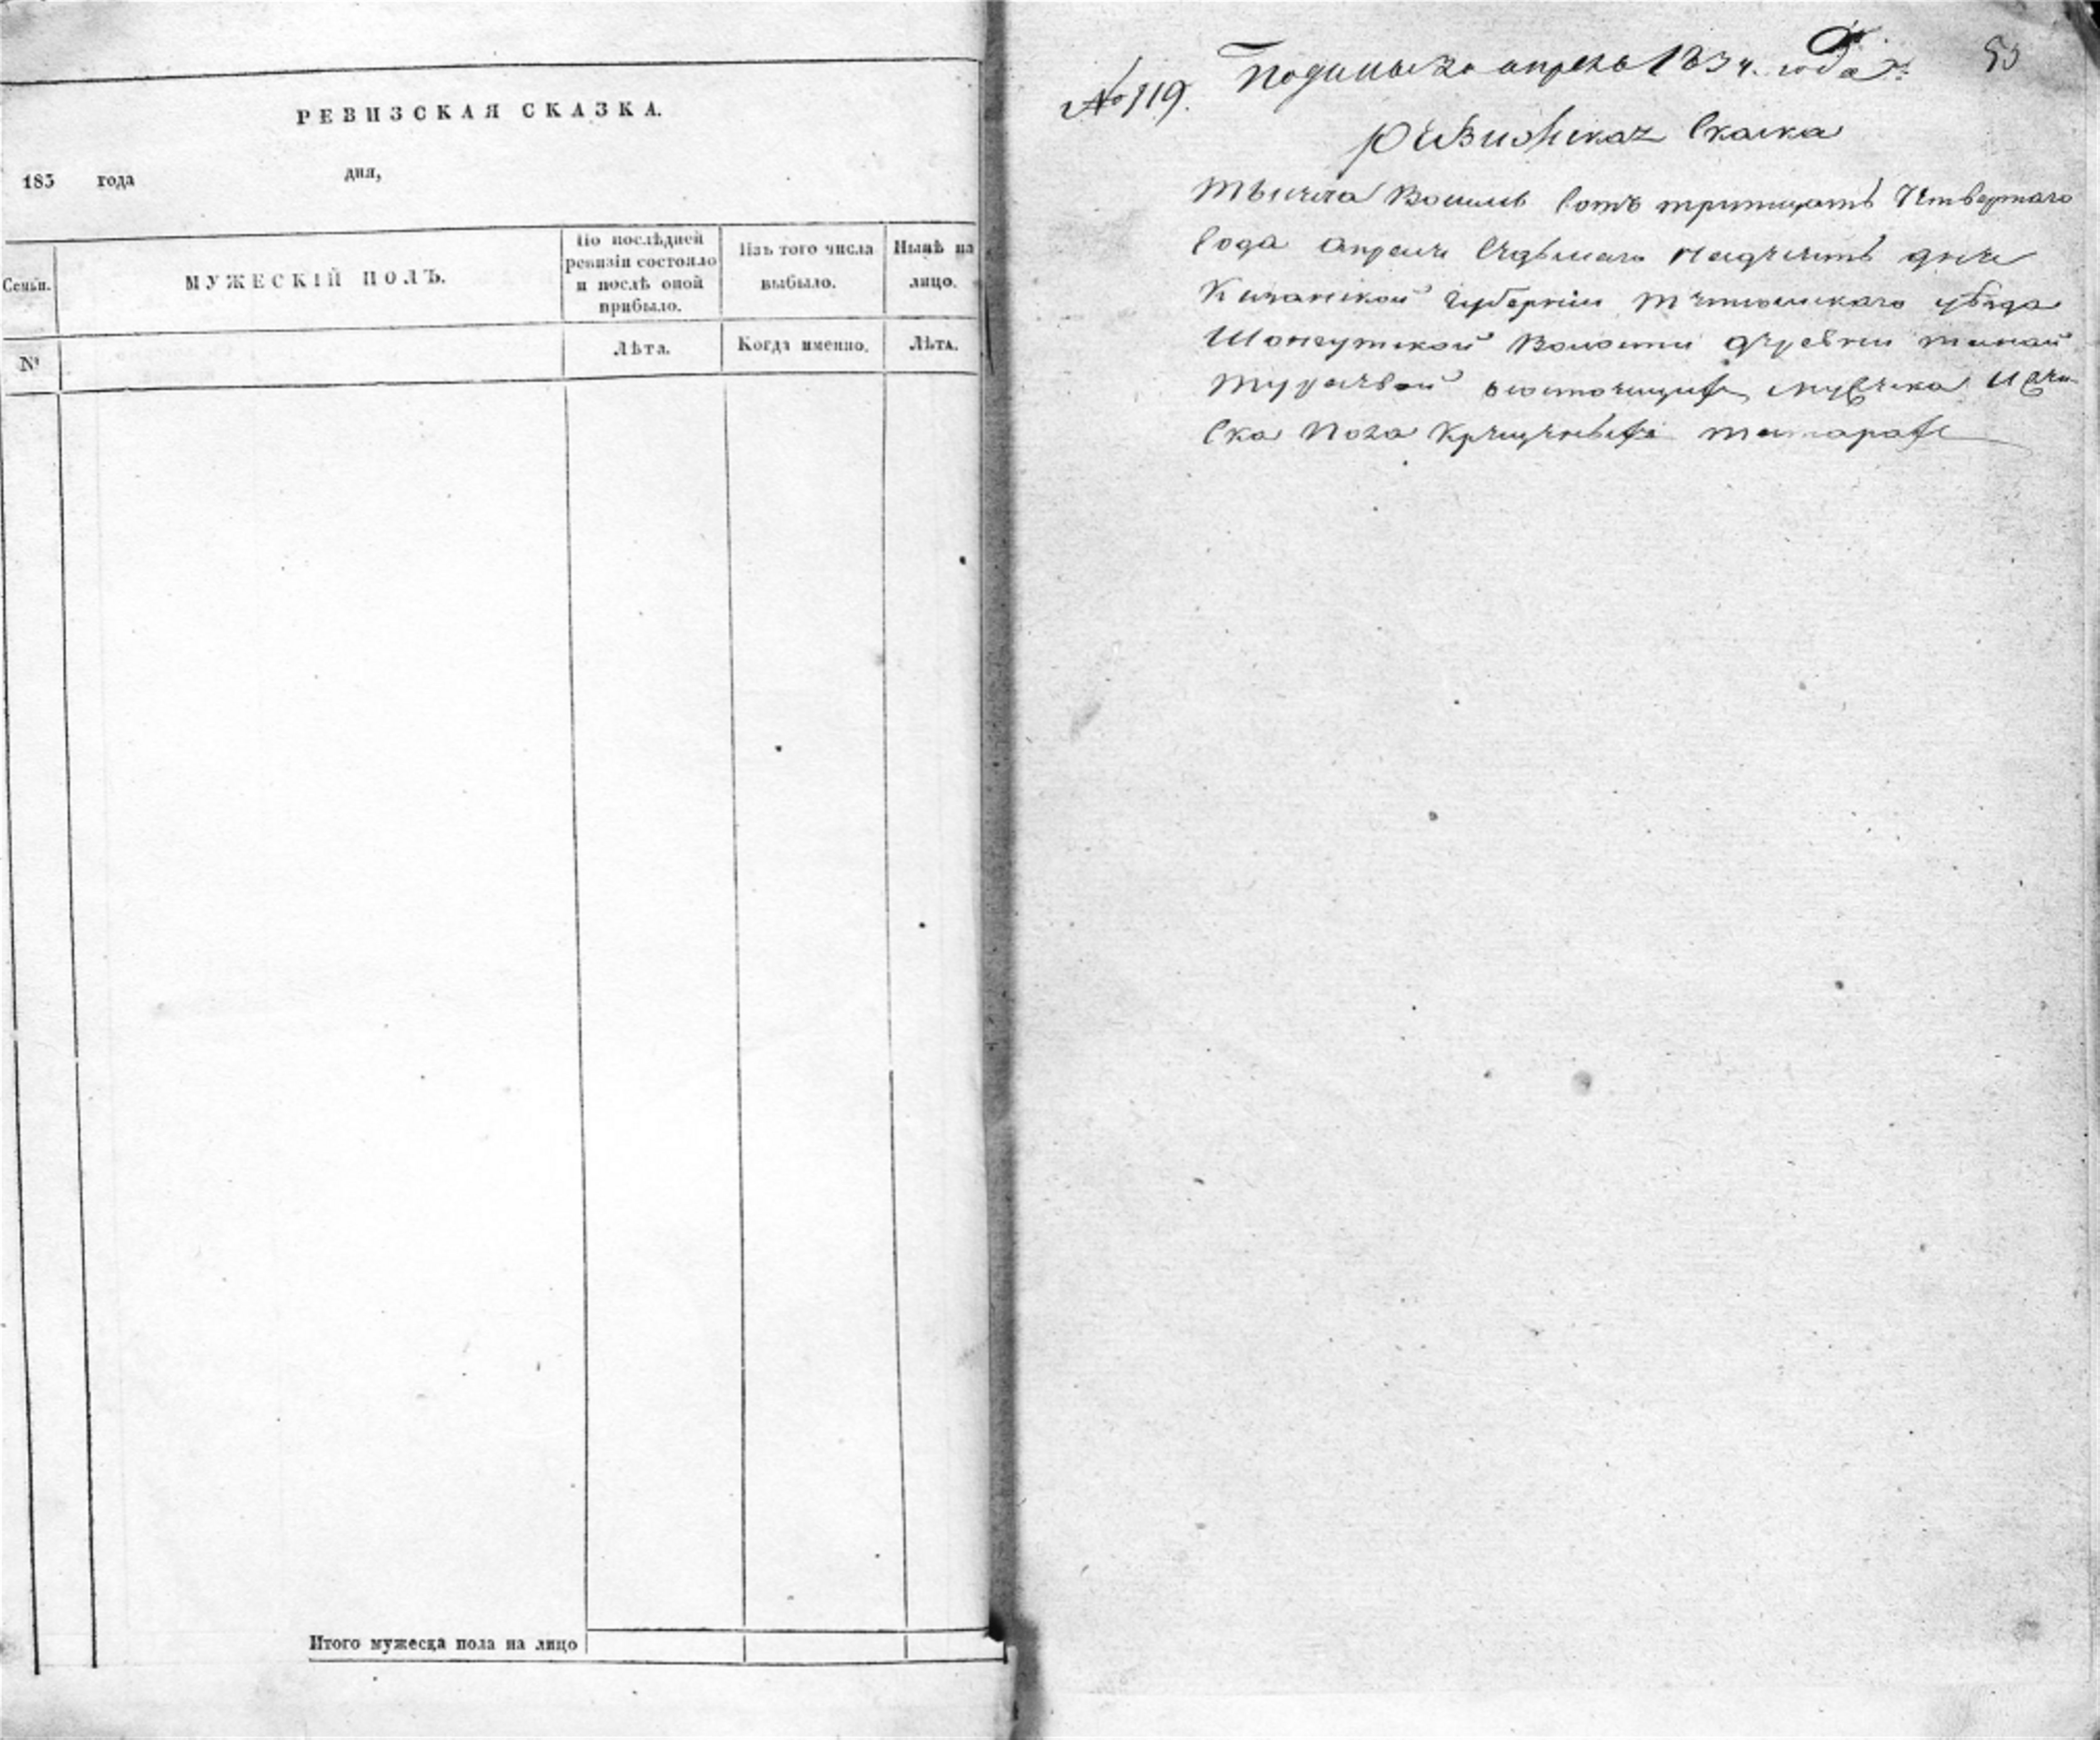 РЕВИЗСКАЯ СКАЗКА.
183 года дня,
Семьи.
МУЖЕСКІЙ ПОЛЪ.
По послѣдней ревизіи состояло и послѣ оной прибыло.
Изъ того числа выбыло.
Нынѣ на лицо.
№
Лѣта.
Когда именно.
Лѣта.
Итого мужеска пола на лицо
№ 119.
апрель 1834. года
ревижская Скаска
тысеча Восимь Сотъ тритцать Четвертаго
Года апреля Седьмаго надцеть дня
Казанской губерніи тетюшскаго уѣзда
Шонгутской Волости деревни
состоящихъ мужска И жен-
ска пола Крещеныхъ татарахъ